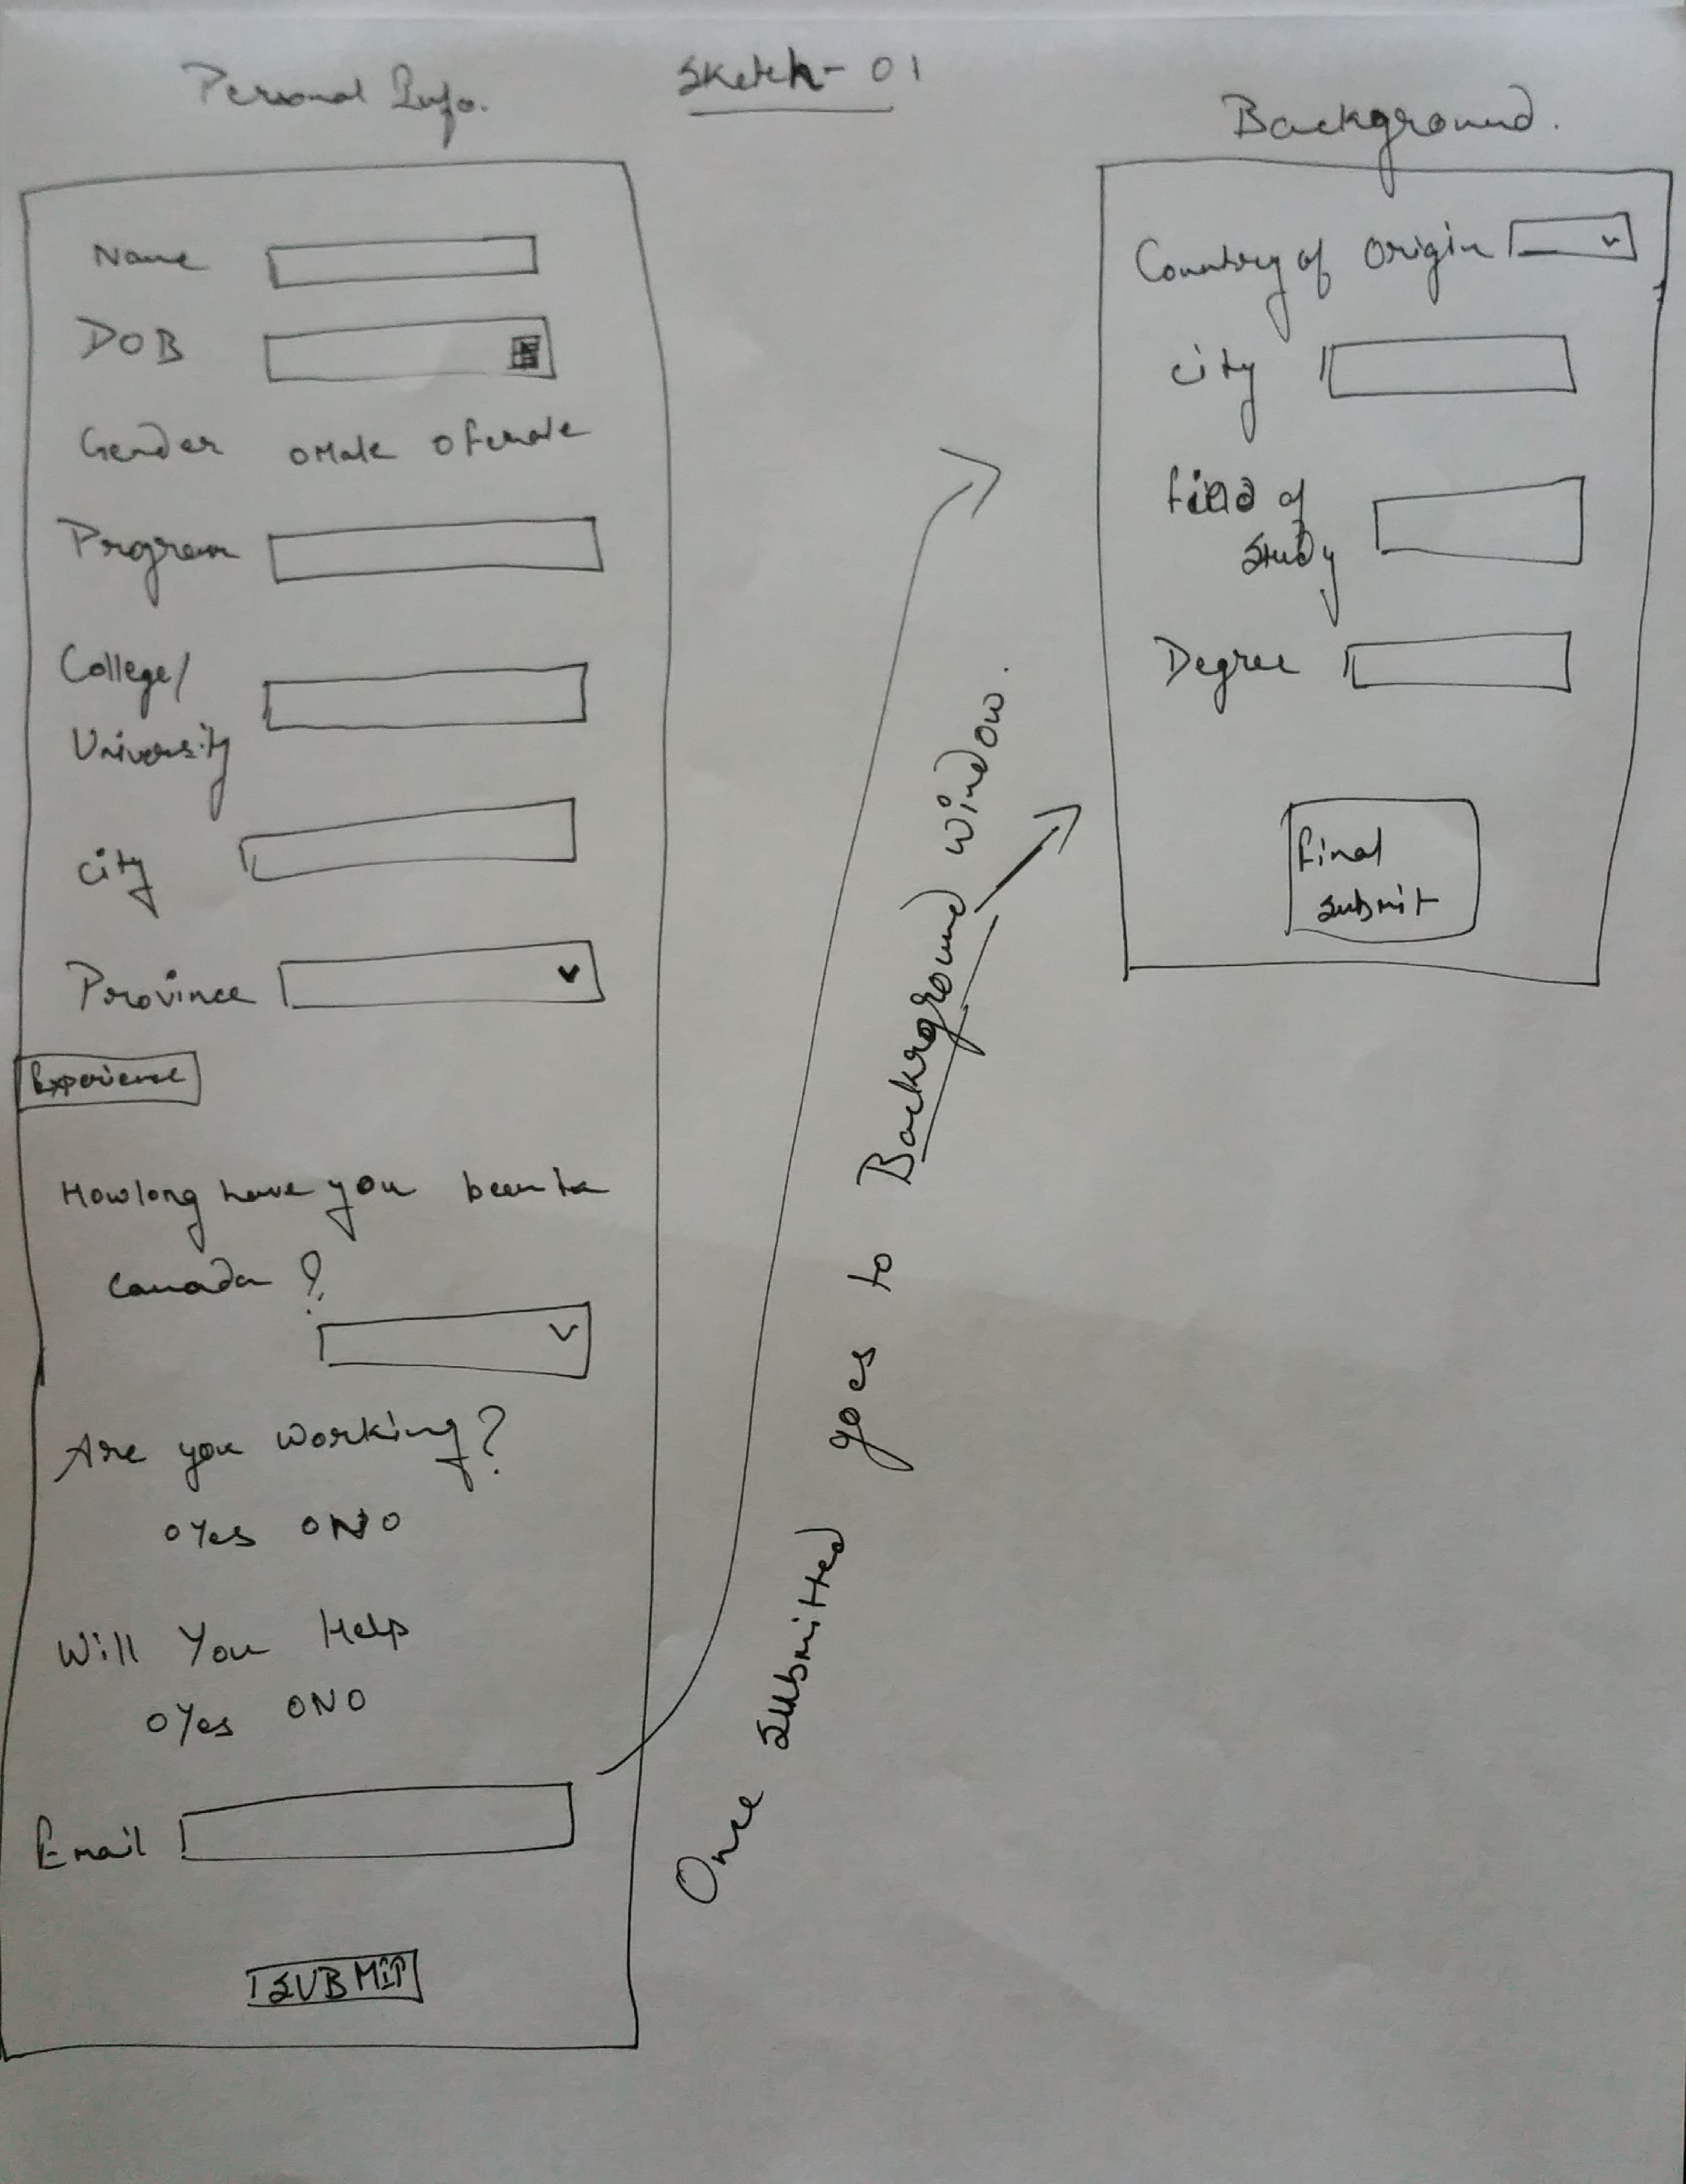 Sketch-01
Personal Info.
Name
DOB
Gender Male Female
Program
College/
University
City
Province
Experience
How long have you been to
Canada?
Are you working?
Yes NO
Will You Help
Yes NO
Email
SUBMIT
Once submitted goes to Background window.
Background.
Country of Origin
City
Field of
Study
Degree
Final
submit